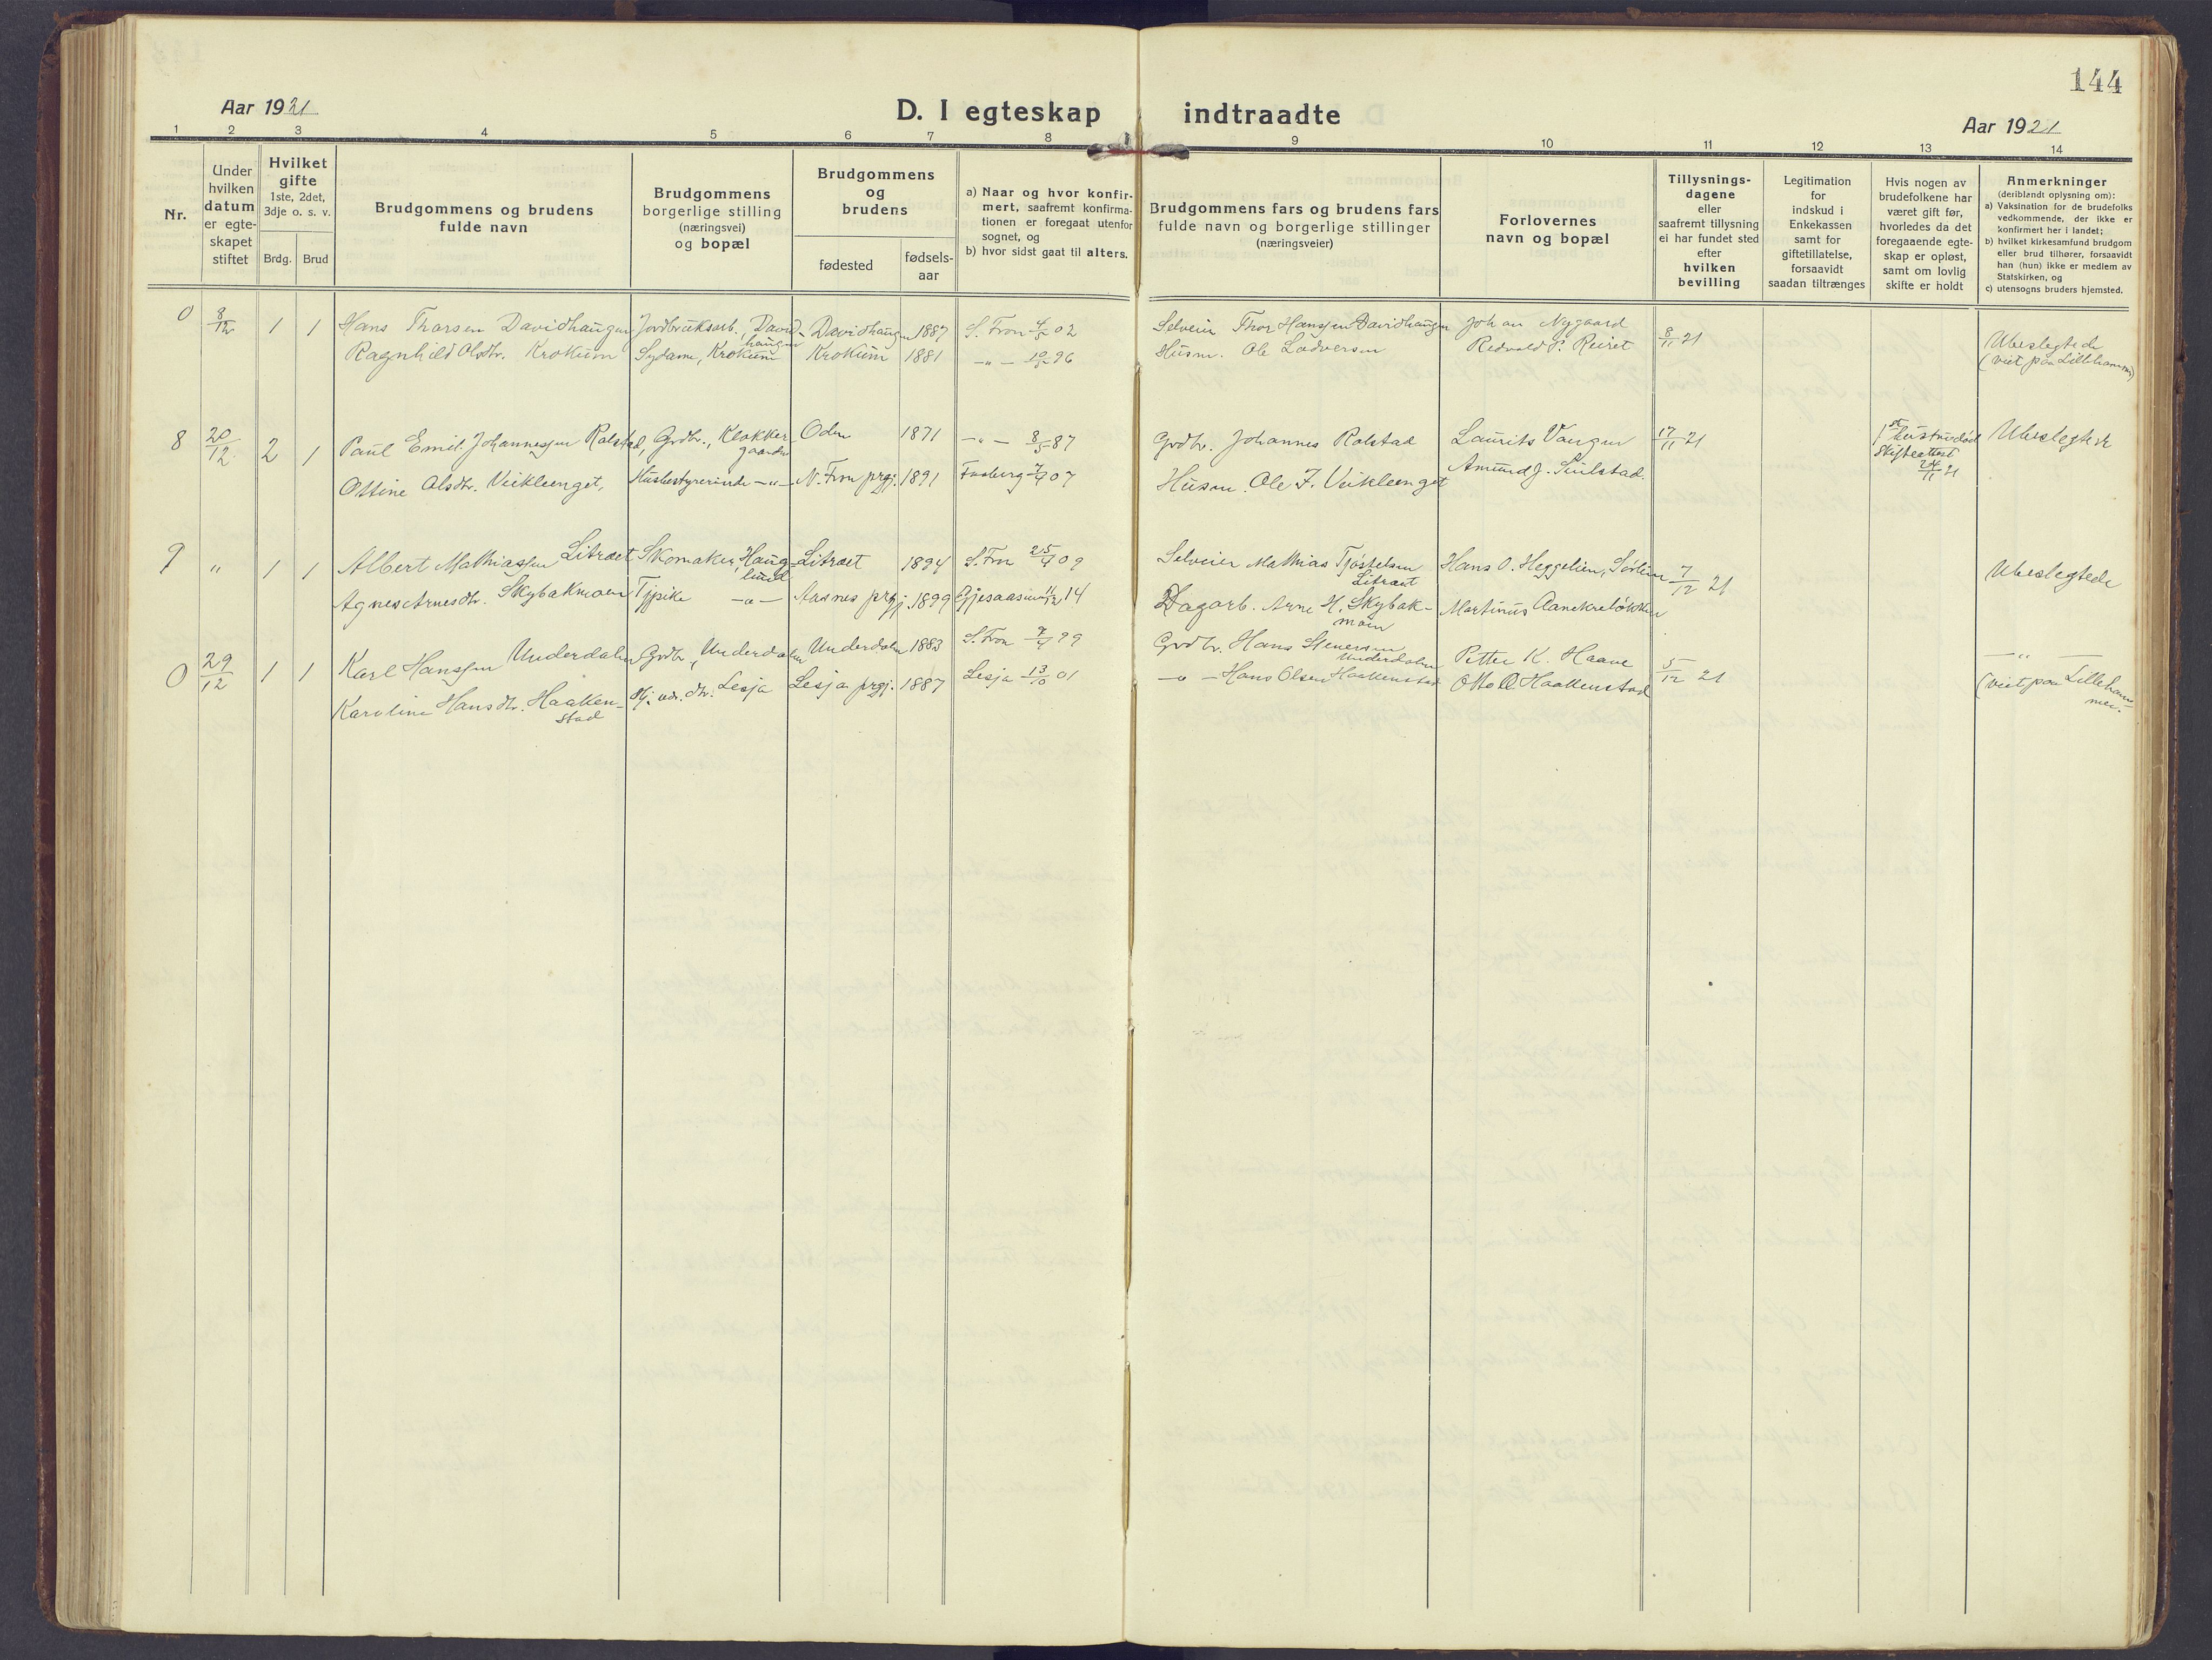 144
Aar 1921
D. I egteskap indtraadte
Aar 1921
1 2 3 4 5 6 7 8 9 10 11 12 13 14
Nr.
Under
hvilken
datum
er egte-
skapet
stiftet
Hvilket
gifte
1ste, 2det,
3dje o. s. v.
Brdg. Brud
Brudgommens og brudens
fulde navn
Brudgommens
borgerlige stilling
(næringsvei)
og bopæl
Brudgommens
og
brudens
fødested
fødsels-
aar
a) Naar og hvor konfir-
mert, saafremt konfirma-
tionen er foregaat utenfor
sognet, og
b) hvor sidst gaat til alters.
Brudgommens fars og brudens fars
fulde navn og borgerlige stillinger
(næringsveier)
Forlovernes
navn og bopæl
Tillysnings-
dagene
eller
saafremt tillysning
ei har fundet sted
efter
hvilken
bevilling
Legitimation
for
indskud i
Enkekassen
samt for
giftetillatelse,
forsaavidt
saadan tiltrænges
Hvis nogen av
brudefolkene har
været gift før,
hvorledes da det
foregaaende egte-
skap er opløst,
samt om lovlig
skifte er holdt
Anmerkninger
(deriblandt oplysning om):
a) Vaksination for de brudefolks
vedkommende, der ikke er
konfirmert her i landet;
b) hvilket kirkesamfund brudgom
eller brud tilhører, forsaavidt
han (hun) ikke er medlem av
Statskirken, og
c) utensogns bruders hjemsted.
0 8/12 1 1 Hans Thorsen Davidhaugen Jordbruksarb., David-haugen Davidhaugen 1887 S. Fron 4/5 02 Selveier Thor Hanssen Davidhaugen Johan Nygaard 8/11 21
Ragnhild Olsdtr. Krokum Sydame, Krokum Krokum 1881 -"- 10/5 96 Husm. Ole Lodversen Redvald P. Reiret Ubeslegtede
(viet paa Lillehammer)
8 20/12 2 1 Paul Emil Johannessen Rolstad, Grdbr., Klokker-gaarden Oden 1871 -"- 8/5 87 Grdbr. Johannes Rolstad Laurits Vangen 17/11 21 1ste hustru død Ubeslegtede
Skifteattest
24/11 21
Ottine Olsdtr. Veikleenget, Husbestyrerinde -"- N. Fron prgj. 1891 Faaberg 7/4 07 Husm. Ole F. Veikleenget Amund J. Sulstad.
9 " 1 1 Albert Mathiassen Litraet Skomaker, Haug-lund Litraet 1894 S. Fron 25/4 09 Selveier Mathias Tjøstelsen Litraet Hans O. Heggelien, Sørlien 7/12 21 Ubeslegtede
Agnes Arnesdtr. Skybakmoen Tjpike -"- Aasnes prgj. 1899 Gjesaasen 11/12 14 Dagarb. Arne H. Skybak-moen Martinus Aanekreløkken
0 29/12 1 1 Karl Hanssen Underdalen Grdbr., Underdalen Underdalen 1883 S. Fron 7/4 99 Grdbr. Hans Stenersen Underdalen Petter K. Haave 5/12 21 -"-
Karoline Hansdtr. Haaken-stad Hj. vær. dtr. Lesja Lesja prgj. 1887 Lesja 13/10 01 -"- Hans Olsen Haakenstad Otto O. Haakenstad (viet paa Lilleham-mer.